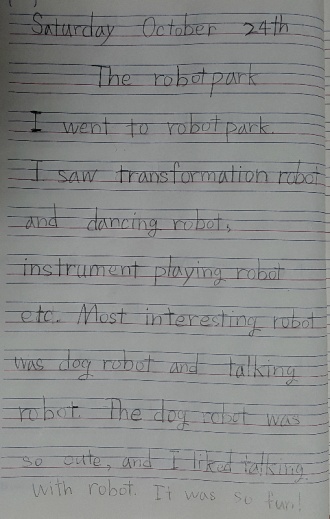 Saturday October 24th
The robot park
I went to robot park.
I saw transformation robot
and dancing robot,
instrument playing robot
etc. Most interesting robot
was dog robot and talking
robot. The dog robot was
so cute, and I liked talking
with robot. It was so fun!